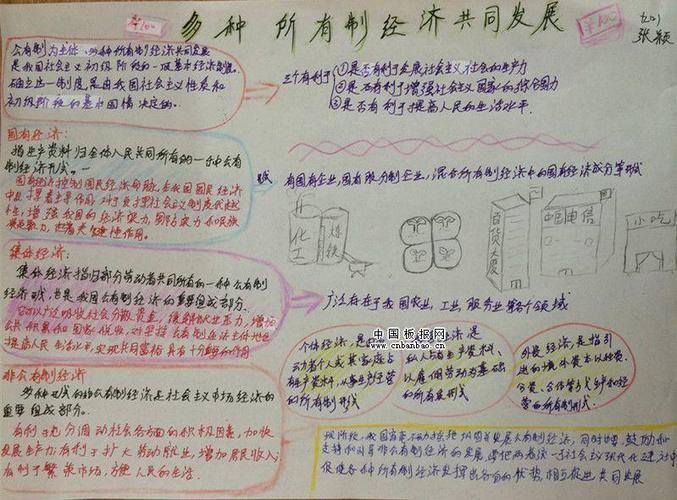 多种所有制经济共同发展
九(1)
张颖
¥100
¥100
公有制为主体、多种所有制经济共同发展
是我国社会主义初级阶段的一项基本经济制度。
确立这一制度,是由我国社会主义性质和
初级阶段的基本国情决定的。
三个有利于
①是否有利于发展社会主义社会的生产力
②是否有利于增强社会主义国家的综合国力
③是否有利于提高人民的生活水平.
国有经济:
指生产资料归全体人民共同所有的一种公有
制经济形式。
国有经济控制国民经济命脉,在我国国民经济
中起主导作用,对于发挥社会主义制度优越
性,增强我国的经济实力,国防实力和民族
凝聚力,
有国有企业,国有股分制企业,混合所有制经济中的国有经济成分等形式
化工
炼铁
百货大厦
中国电信
小吃
集体经济:
集体经济指归部分劳动者共同所有的一种公有制
经济形式,也是我国公有制经济的重要组成部分.
它可以广泛吸收社会分散资金,缓解就业压力,增加
公共积累和国家税收,对坚持公有制主体地位
提高人民生活水平,实现共同富裕具有十分重要的作用
广泛存在于我国农业,工业,服务业等各个领域
中国板报网
www.cnbanbao.cn
非公有制经济
多种形式的非公有制经济是社会主义市场经济的
重要组成部分.
有利于充分调动社会各方面的积极因素,加快
发展生产力;有利于扩大劳动就业,增加居民收入
有利于繁荣市场,方便人民的生活.
个体经济,是
动者个人或其家庭占
有生产资料,从事生产经营
的所有制形式
经济是
私人占有生产资料、
以雇佣劳动为基础
的所有制形式
外资经济,是指引
进的境外资本以独资、
合资、合作等方式
的所有制形式.
现阶段,我国
发展公有制经济,同时
鼓励和
支持和引导非公有制经济的发展,
社会主义现代化建设中
使各种所有制经济发挥出各自的优势,相互促进共同发展